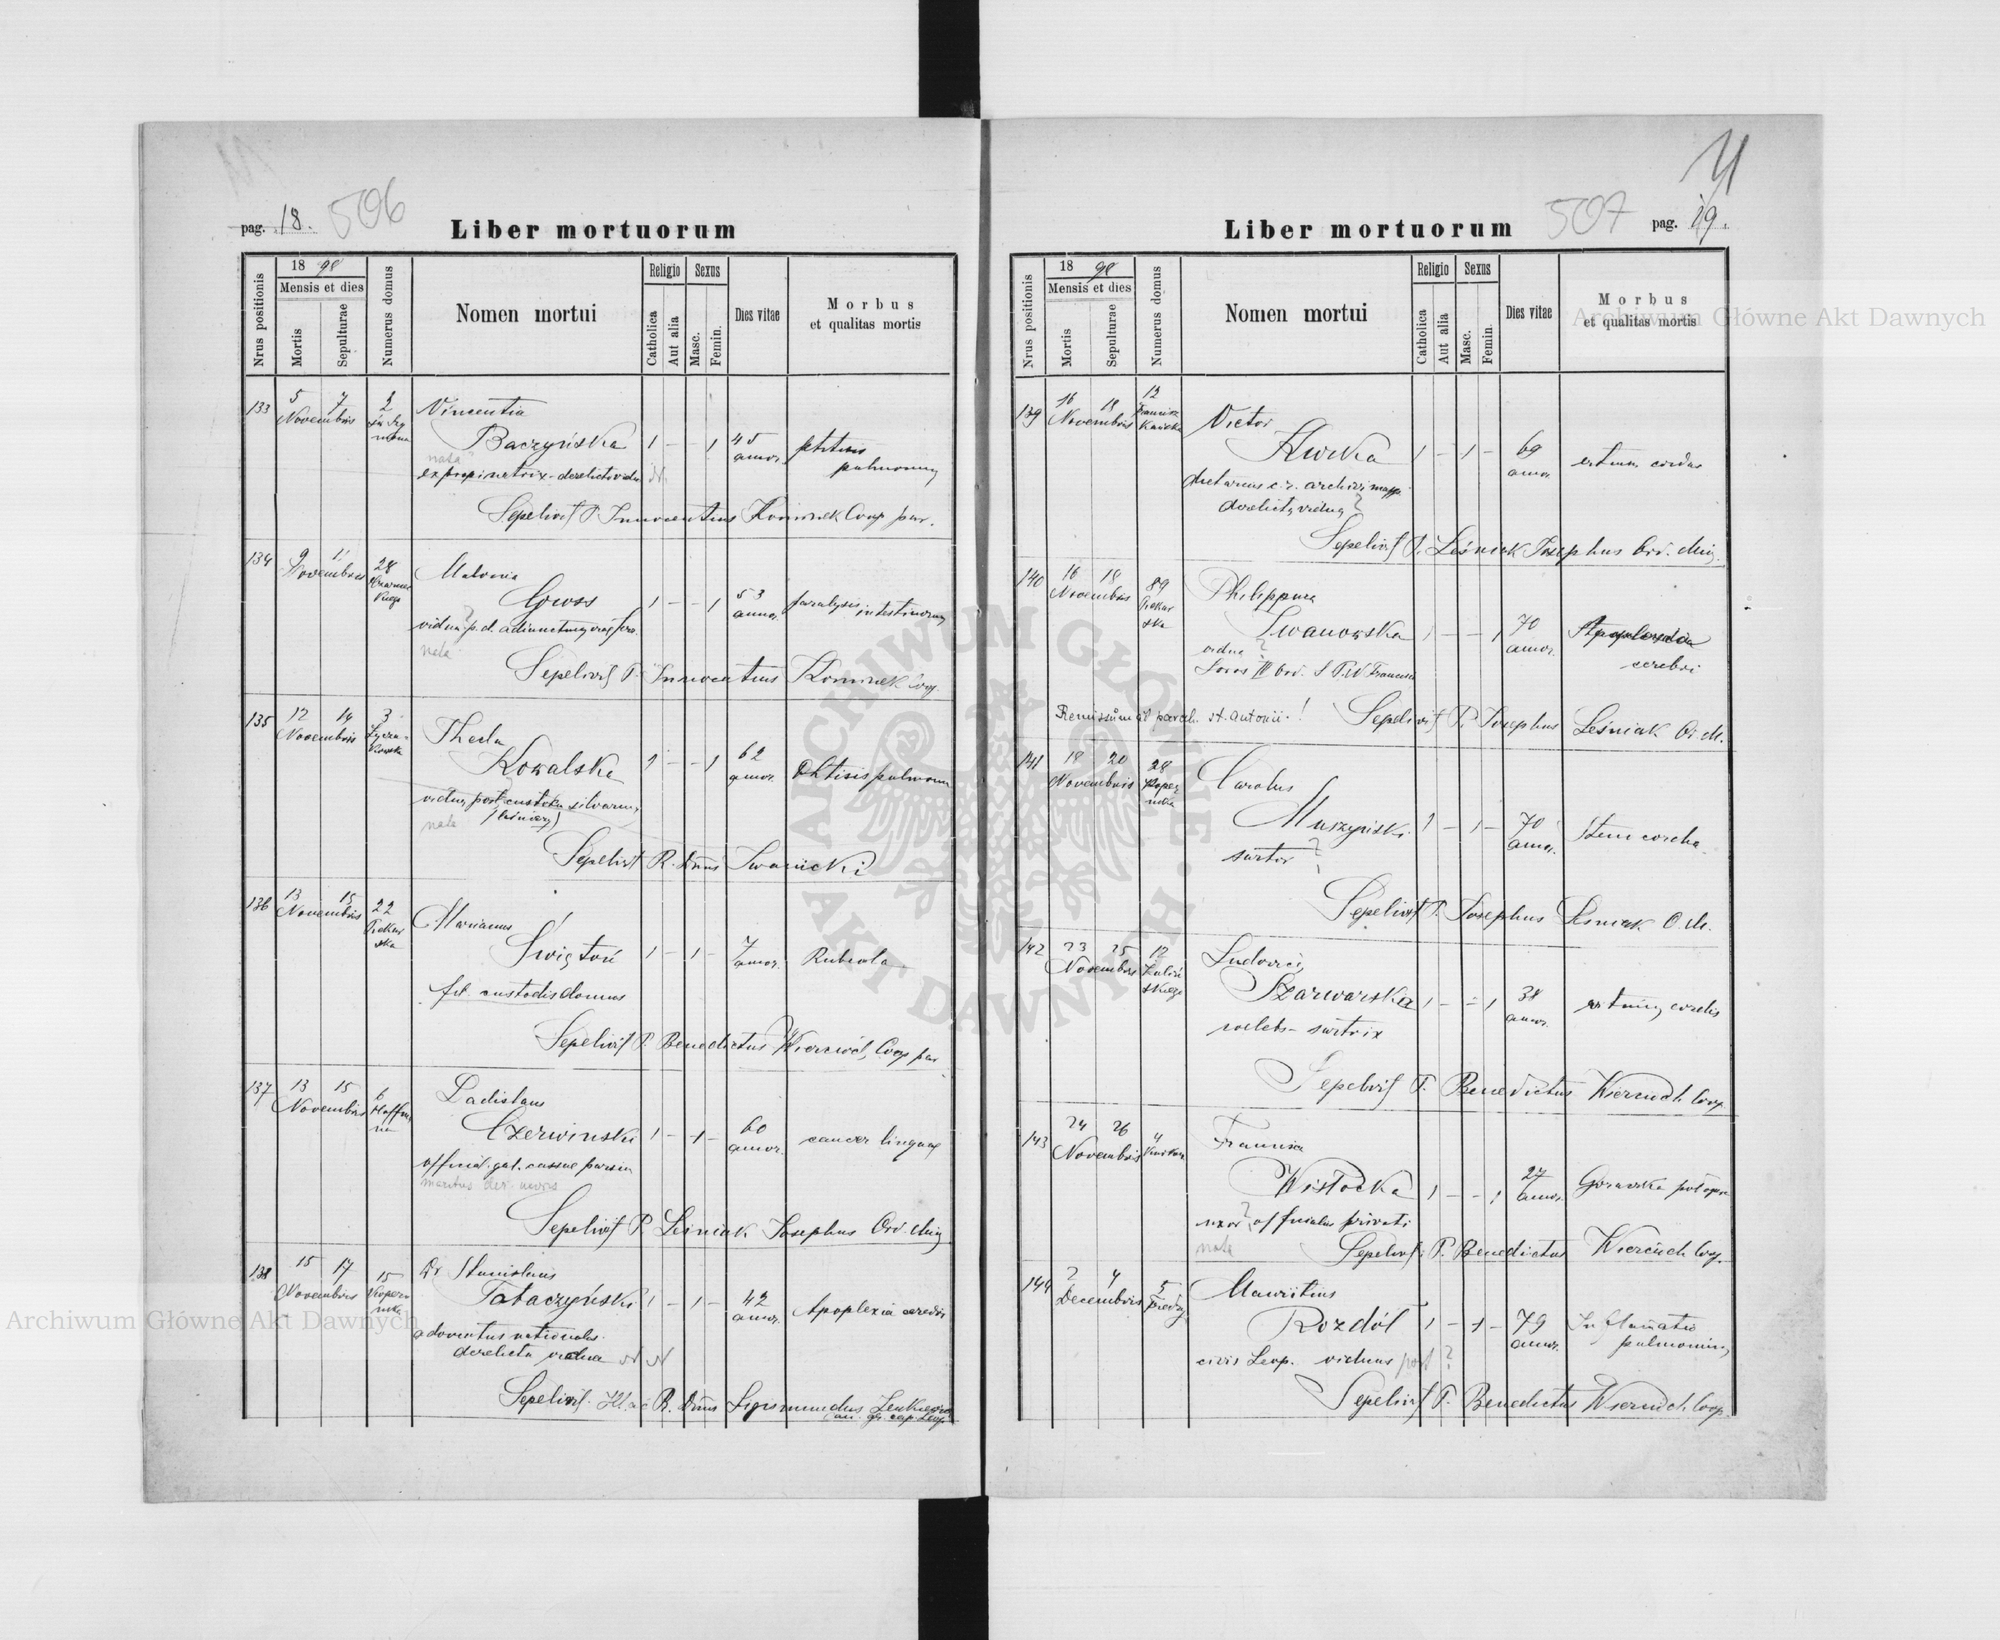 506
pag. 18.
Liber mortuorum
Nrus positionis
1898
Mensis et dies
Mortis
Sepulturae
Numerus domus
Nomen mortui
Religio
Catholica
Aut alia
Sexus
Masc.
Femin.
Dies vitae
Morbus
et qualitas mortis
133 5 7 Novembris 2
Vincentia
Baczyńska 1 – – 1 45 annor. phtisis pulmonum
nata
expropinatrix - derelicto viduo N.
Sepelivit P. Innocentius Kominek Coop par.
134 9 11 Novembris 28
Antonia
Gross 1 – – 1 53 annor. paralysis intestinorum
vidua p. d.
nata
Sepelivit P. Innocentius Kominek Coop
135 12 14 Novembris 3 Łyczakowska
Thecla
Kowalska 1 – – 1 62 annor. Phtisis pulmonum
vidua post custodem silvarum
nata (leśniczy)
Sepelivit R. Dnus Iwanicki
136 13 15 Novembris 22 Piekarska
Marianus
Świętoń 1 – 1 – 7 annor. Rubeola
fil. custodis domus
Sepelivit P. Benedictus Wiercioch, Coop par
137 13 15 Novembris 6 Hoffmana
Ladislaus
Czerwiński 1 – 1 – 60 annor. cancer linguae
official. gal. cassae parsim
maritus der. uxoris
Sepelivit P. Leśniak Josephus Ord. Min
138 15 17 Novembris 15 Kopernika
Dr Stanislaus
Tabaczyński 1 – 1 – 42 annor. Apoplexia cerebri
advocatus nationalis
derelicta vidua N N
Sepelivit R. Dnus Sigismundus
507
pag. 19.
Liber mortuorum
Nrus positionis
1898
Mensis et dies
Mortis
Sepulturae
Numerus domus
Nomen mortui
Religio
Catholica
Aut alia
Sexus
Masc.
Femin.
Dies vitae
Morbus
et qualitas mortis
139 16 18 Novembris 12
Victor
Hurka 1 – 1 – 69 annor. vitium cordis
dietarius c. r. archivi mapp.
derelicta vidua ?
Sepelivit P. Leśniak Josephus Ord. Min.
140 16 18 Novembris 89 Piekarska
Philippina
Iwanowska 1 – – 1 70 annor. Apoplexia cerebri
vidua ?
Soror III Ord. S P. N Francisci
Remissum ad paroch. st. Antonii! Sepelivit P. Josephus Leśniak O. M.
141 18 20 Novembris 28 Kopernika
Carolus
Muszyński 1 – 1 – 70 annor.
sartor ?
Sepelivit P. Josephus Leśniak O. M.
142 23 25 Novembris 12
Ludovica
Szarwarska 1 – – 1 38 annor. vitium cordis
coelebs - sartrix
Sepelivit P. Benedictus Wiercioch Coop
143 24 26 Novembris 4
Francisca
Wisłocka 1 – – 1 27 annor. Gorączka połogowa
uxor ? officialis privati
nata
Sepelivit P. Benedictus Wiercioch Coop.
144 2 4 Decembris 5 Fredry
Mauritius
Rozdół 1 – 1 – 79 annor. Inflamatio pulmonum
civis Leop. viduus post ?
Sepelivit P. Benedictus Wiercioch Coop.
Archiwum Główne Akt Dawnych
Archiwum Główne Akt Dawnych
ARCHIWUM GŁÓWNE · AKT DAWNYCH ·